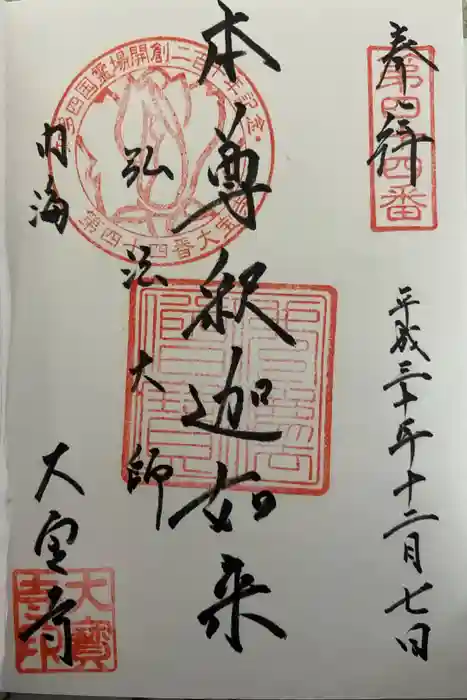 奉拝
第四十四番
平成三十年十二月七日
本尊釈迦如来
弘法大師
内海
大宝寺
四国霊場開創二百十年記念・
第四十四番大宝寺
大寳寺印